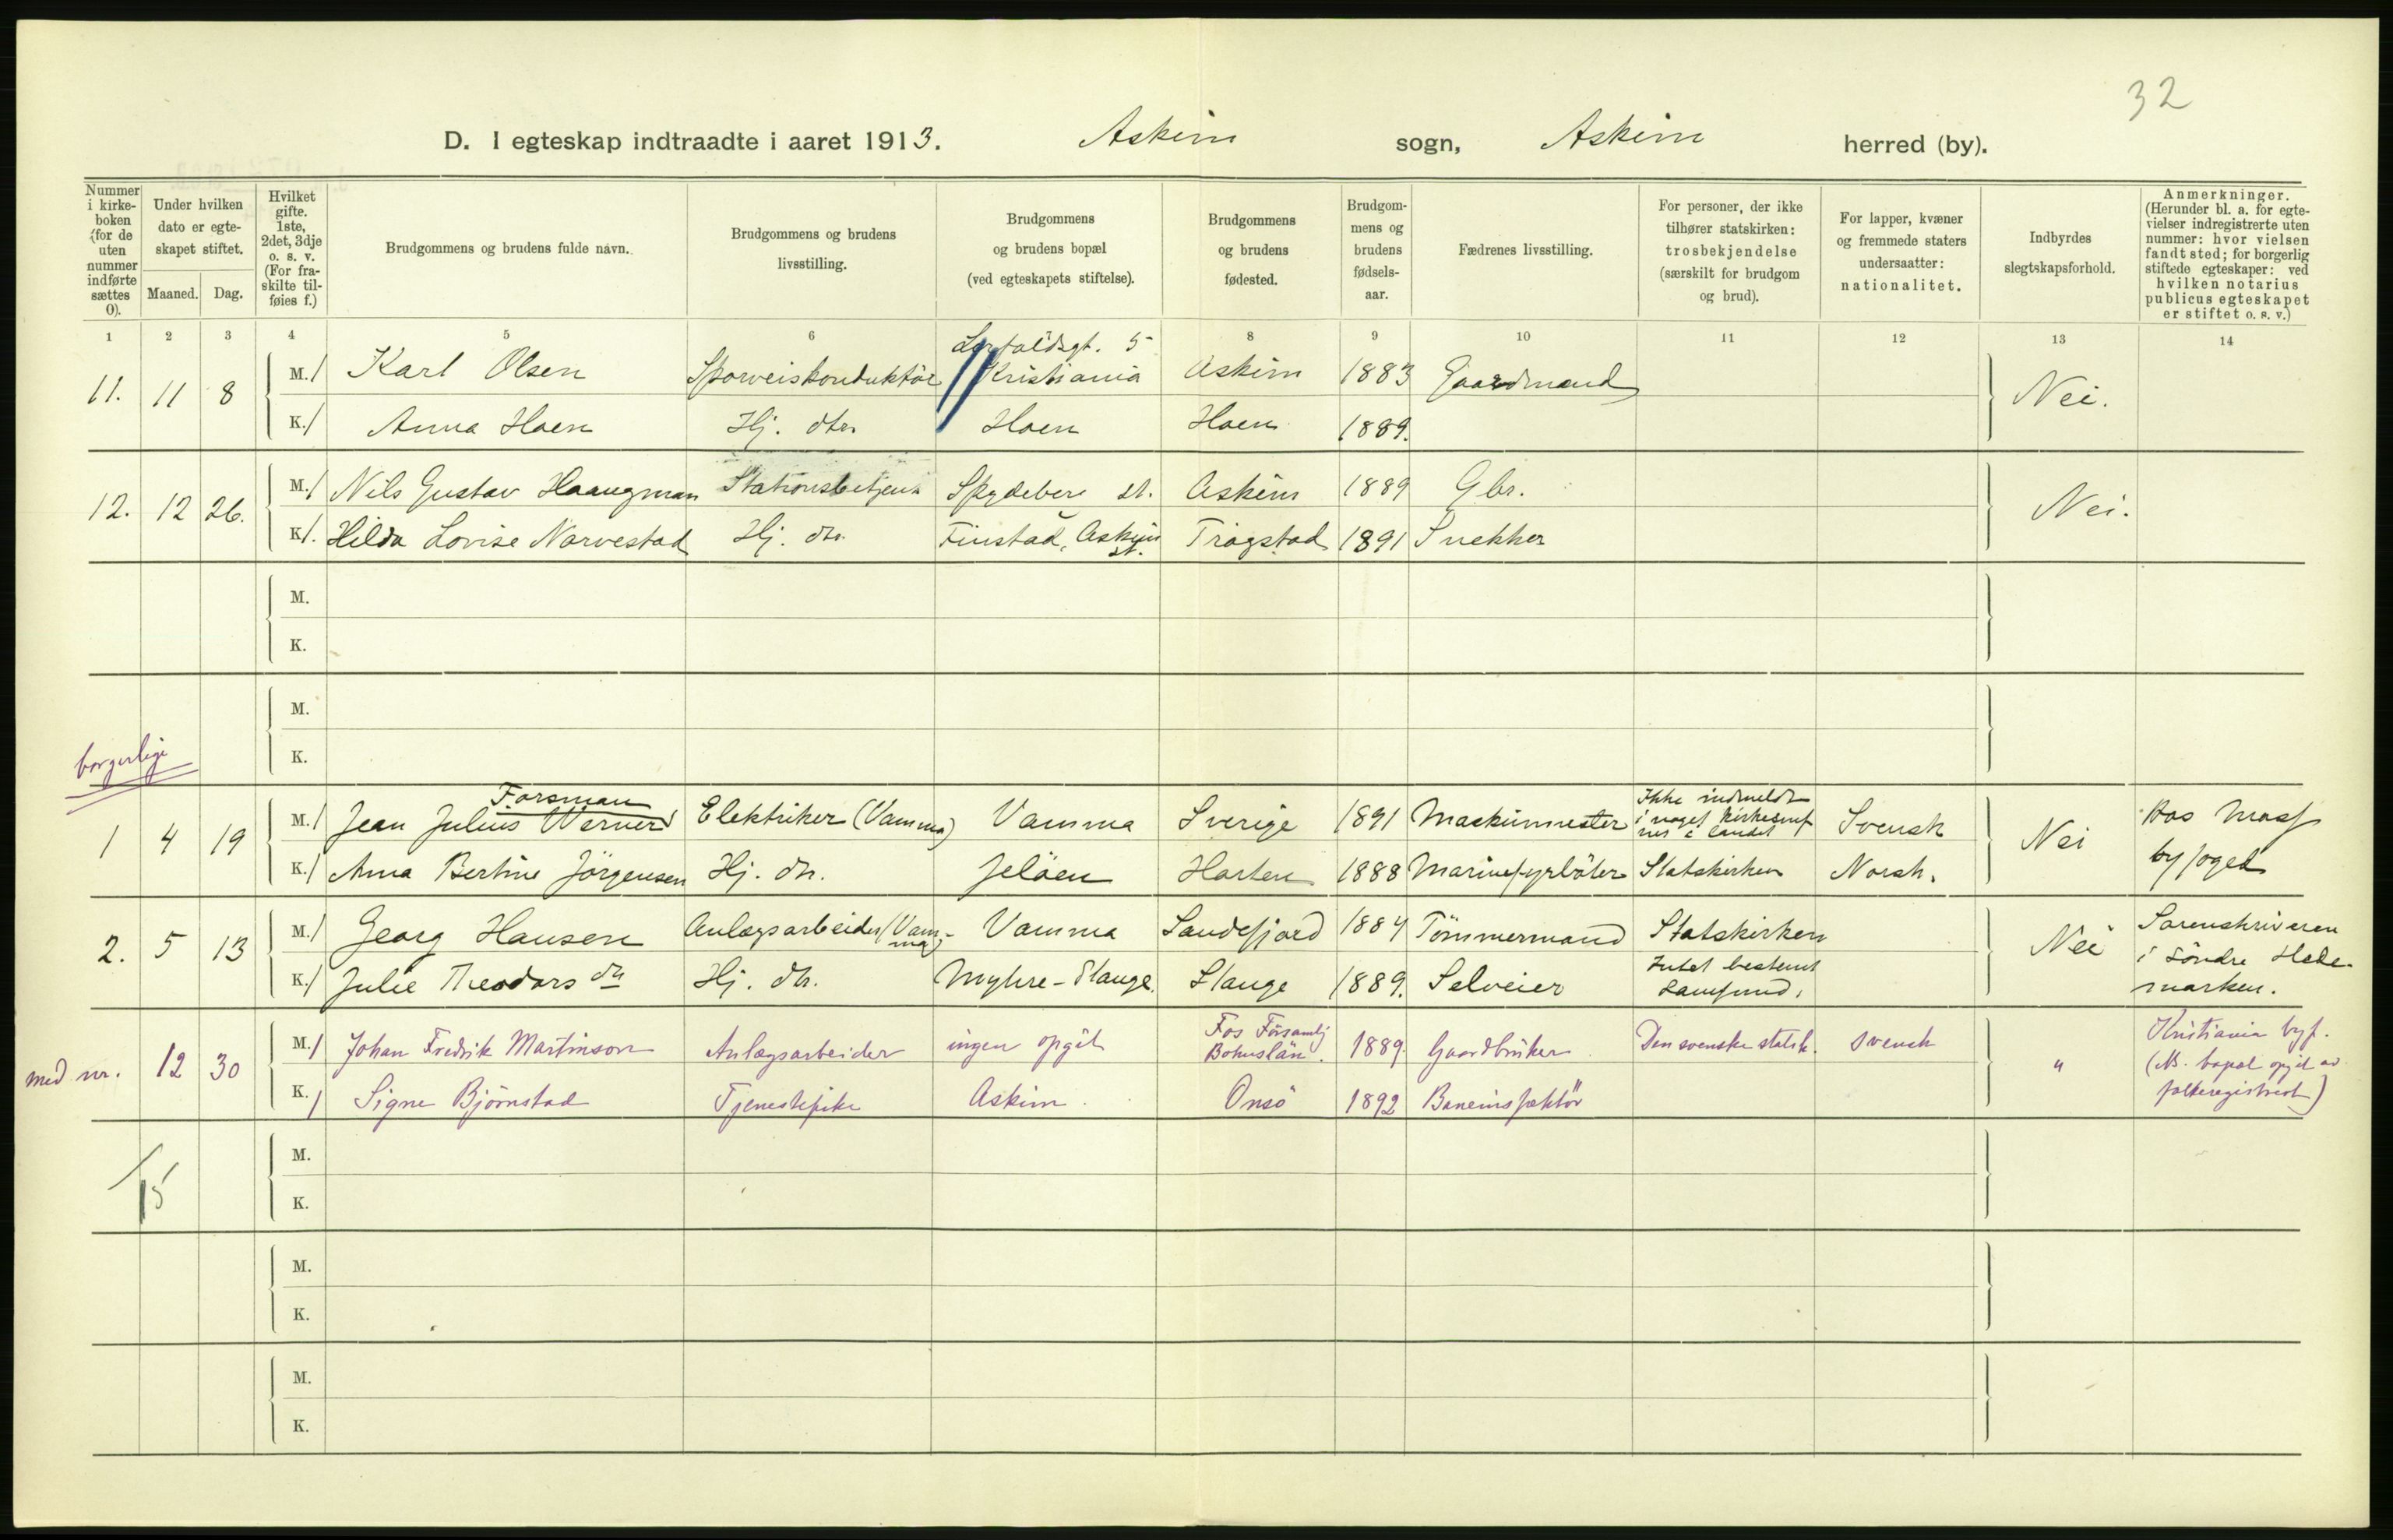 32
D. I egteskap indtraadte i aaret 1913. Askim sogn, Askim herred (by).
Nummer i kirkeboken (for de uten nummer indførte sættes 0).
Under hvilken dato er egteskapet stiftet.
Maaned. Dag.
Hvilket gifte. 1ste, 2det, 3dje o. s. v. (For fraskilte tilføies f.)
Brudgommens og brudens fulde navn.
Brudgommens og brudens livsstilling.
Brudgommens og brudens bopæl (ved egteskapets stiftelse).
Brudgommens og brudens fødested.
Brudgommens og brudens fødselsaar.
Fædrenes livsstilling.
For personer, der ikke tilhører statskirken: trosbekjendelse (særskilt for brudgom og brud).
For lapper, kvæner og fremmede staters undersaatter: nationalitet.
Indbyrdes slegtskapsforhold.
Anmerkninger. (Herunder bl. a. for egtevielser indregistrerte uten nummer: hvor vielsen fandt sted; for borgerlig stiftede egteskaper: ved hvilken notarius publicus egteskapet er stiftet o. s. v.)
1 2 3 4 5 6 8 9 10 11 12 13 14
11. 11 8 M. 1 Karl Olsen Sporveiskonduktør 5 Kristiania Askim 1883 Gaardmand Nei.
K. 1 Anna Haen Hj. dtr. Haen Haen 1889.
12. 12 26. M. 1 Nils Gustav Haangman Stationsbetjent Spydeberg st. Askim 1889 Gbr. Nei.
K. 1. Hilda Lovise Narvestad Hj. dtr. Finstad, Askim st. Trøgstad 1891 Snekker
M.
K.
M.
K.
borgerlige
1 4 19 M. 1 Jean Julius Werner Forsman Elektriker (Vamma) Vamma Sverige 1891 Maskinmester Ikke indmeldt i noget kirkesamf Svensk Nei Hos Moss byfoged
K. 1 Anna Bertine Jörgensen Hj. dtr. Jelöen Horten 1888 Marinefyrböter Statskirken Norsk.
2. 5 13 M. 1 Georg Hansen Anlægsarbeider (Vamma) Vamma Sandefjord 1884 Tömmermand Statskirken Nei Sorenskriveren i Söndre Hedemarken.
K. 1 Julie Theodorsdtr Hj. dtr. Myhre-Stange. Stange 1889. Selveier Intet bestemt Samfund.
med nr. 12 30 M. 1 Johan Fredrik Martinson Anlægsarbeider ingen opgit Fos Församlj Bohuslän. 1889. Gaardbruker Den svenske statsk. svensk " Kristiania byf. (NB. bopæl opgit av folkeregisteret)
K. 1 Signe Björnstad Tjenestepike Askim Onsö 1892 Baneinspektör
M.
15
K.
M.
K.
M.
K.